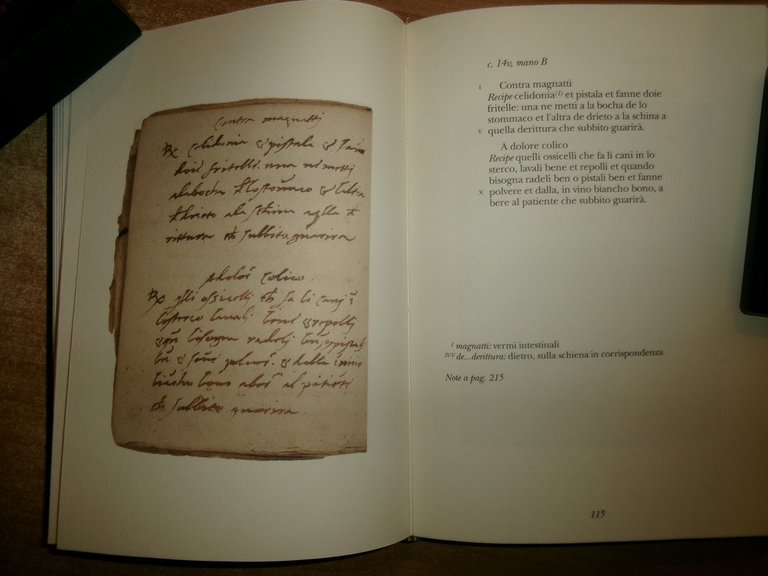 Contra magnatti
℞ celidonia & pistala & fan
doie fritelle. una ne metti
ala bocha
& laltra
ala schina
rittura ch subbito guarira
A dolor colico
℞ q̄lli ossicelli ch fa li cani ī
lo sterco lavali bene & repolli
& q̄n bisogna radeli
polver. & dalla
biancho bono a ber al patiēti
ch subbito guarira.
c. 14v, mano B
I Contra magnatti
Recipe celidonia(1) et pistala et fanne doie
fritelle: una ne metti a la bocha de lo
stommaco et l'altra de drieto a la schina a
V quella derittura che subbito guarirà.
A dolore colico
Recipe quelli ossicelli che fa li cani in lo
sterco, lavali bene et repolli et quando
bisogna radeli ben o pistali ben et fanne
X polvere et dalla, in vino biancho bono, a
bere al patiente che subbito guarirà.
I magnatti: vermi intestinali
IV-V de...derittura: dietro, sulla schiena in corrispondenza
Note a pag. 215
115